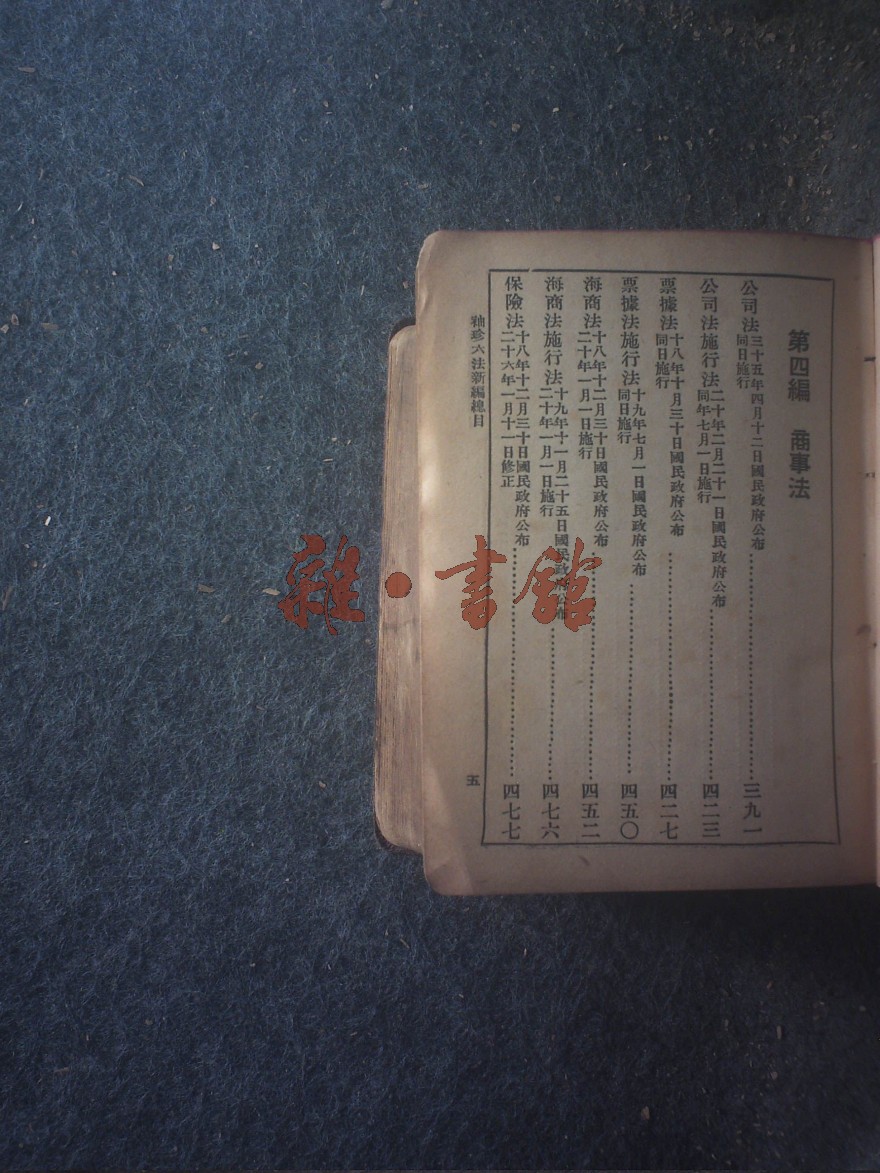 第四編　商事法
公司法三十五年四月十二日國民政府公布同日施行……三九一
公司法施行法二十年二月二十一日國民政府公布同年七月一日施行……四二三
票據法十八年十月三十日國民政府公布同日施行……四二七
票據法施行法十九年七月一日國民政府公布同日施行……四五〇
海商法十八年十二月三十日國民政府公布二十年一月一日施行……四五二
海商法施行法十九年十一月二十五日國民政府公布二十年一月一日施行……四七六
保險法十八年十二月三十日國民政府公布二十六年一月十一日修正……四七七
袖珍六法新編總目
五
雜·書館